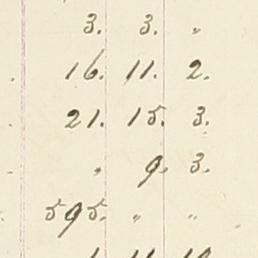 3. 3. "
16. 11. 2.
21. 15. 3.
" 9. 3.
595. " "